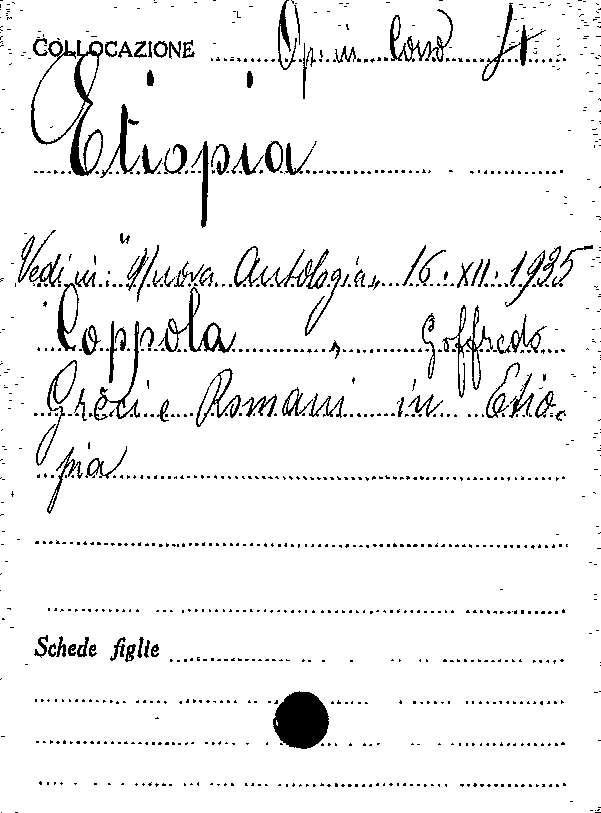 COLLOCAZIONE Op. in Corso
Etiopia
Vedi in: "Nuova Antologia„ 16.XII.1935
Coppola, Goffredo
Greci e Romani in Etio-
pia
Schede figlie